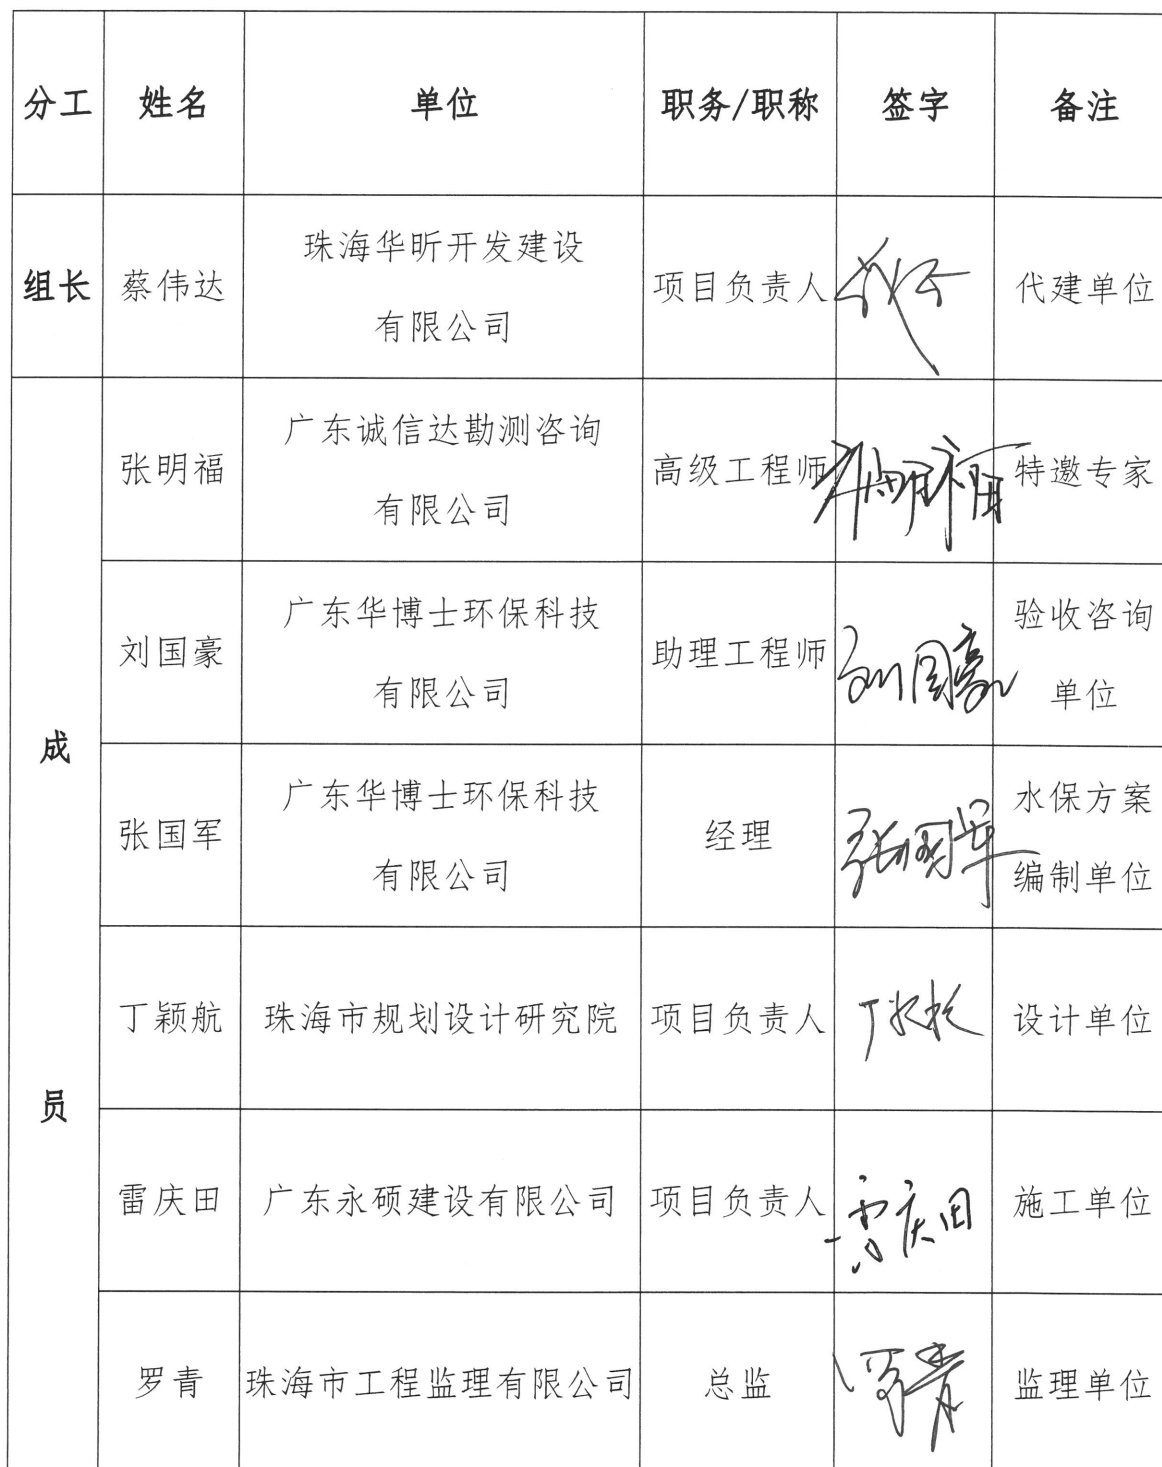 分工 姓名 单位 职务/职称 签字 备注
组长 蔡伟达 珠海华昕开发建设 项目负责人 代建单位
有限公司
成
员
张明福 广东诚信达勘测咨询 高级工程师 张明福 特邀专家
有限公司
刘国豪 广东华博士环保科技 助理工程师 刘国豪 验收咨询
有限公司 单位
张国军 广东华博士环保科技 经理 张国军 水保方案
有限公司 编制单位
丁颖航 珠海市规划设计研究院 项目负责人 设计单位
雷庆田 广东永硕建设有限公司 项目负责人 雷庆田 施工单位
罗青 珠海市工程监理有限公司 总监 罗青 监理单位